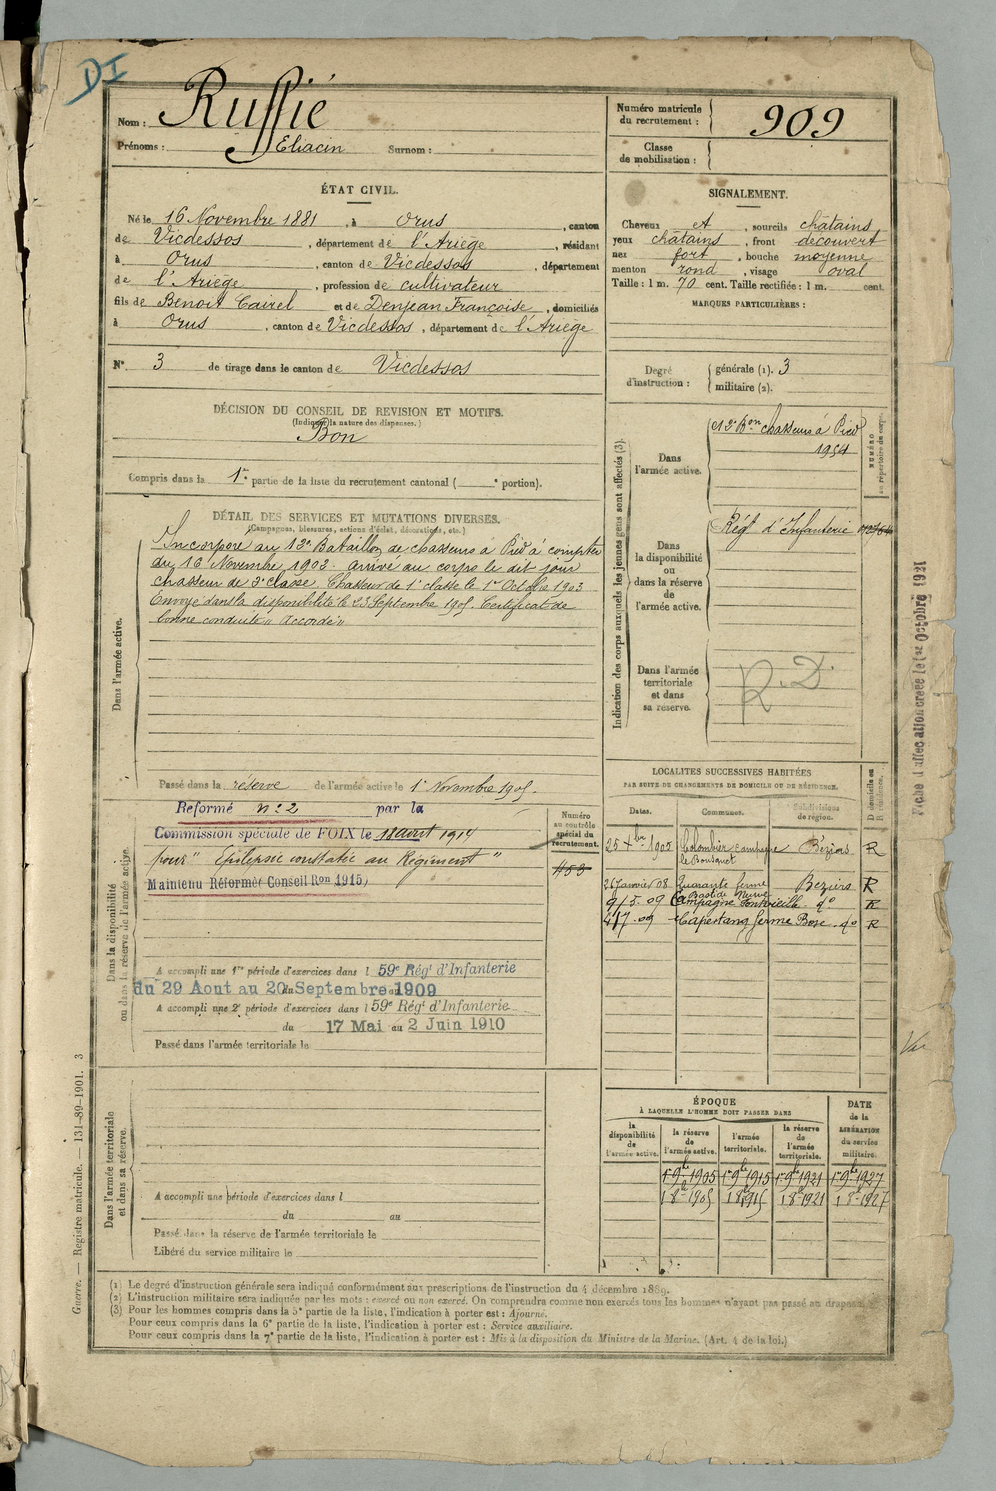 DI
Nom : Russié
Prénoms : Eliacin Surnom :
Numéro matricule du recrutement : 909
Classe de mobilisation :
ÉTAT CIVIL.
Né le 16 Novembre 1881, à Orus, canton
de Vicdessos, département de l'Ariège, résidant
à Orus, canton de Vicdessos, département
de l'Ariège, profession de cultivateur
fils de Benoit Cairel et de Denjean Françoise, domiciliés
à Orus, canton de Vicdessos, département de l'Ariège
N° 3 de tirage dans le canton de Vicdessos
SIGNALEMENT.
Cheveux et, sourcils châtains
yeux châtains, front découvert
nez fort, bouche moyenne
menton rond, visage oval
Taille : 1 m. 70 cent. Taille rectifiée : 1 m. cent.
MARQUES PARTICULIÈRES :
Degré d'instruction : générale (1). 3
militaire (2).
DÉCISION DU CONSEIL DE REVISION ET MOTIFS.
(Indiquer la nature des dispenses.)
Bon
Compris dans la 1re partie de la liste du recrutement cantonal ( e portion).
DÉTAIL DES SERVICES ET MUTATIONS DIVERSES.
(Campagnes, blessures, actions d'éclat, décorations, etc.)
Dans l'armée active.
Incorporé au 13e Bataillon de chasseurs à Pied à compter
du 16 Novembre 1902. arrivé au corps le dit jour
chasseur de 2e classe. Chasseur de 1e classe le 1er Octobre 1903
Envoyé dans la disponibilité le 23 Septembre 1905. Certificat de
bonne conduite "accordé"
Passé dans la réserve de l'armée active le 1er Novembre 1905.
Indication des corps auxquels les jeunes gens sont affectés (3).
NUMÉRO au répertoire du corps.
Dans l'armée active.
13e Bon chasseurs à Pied
1954
Dans la disponibilité ou dans la réserve de l'armée active.
Régt d'Infanterie
Dans l'armée territoriale et dans sa réserve.
R.D.
Fiche d'affectation créée le 1er Octobre 1921
Dans la disponibilité ou dans la réserve de l'armée active.
Reformé n° 2 par la
Commission spéciale de FOIX le 18 aout 1914
pour "Epilepsie constatée au Régiment"
Maintenu Réformé (Conseil Ron 1915)
Numéro au contrôle spécial du recrutement.
453
A accompli une 1re période d'exercices dans l 59e Régt d'Infanterie
du 29 Aout au 20 Septembre 1909
A accompli une 2e période d'exercices dans l 59e Régt d'Infanterie
du 17 Mai au 2 Juin 1910
Passé dans l'armée territoriale le
LOCALITES SUCCESSIVES HABITÉES
PAR SUITE DE CHANGEMENTS DE DOMICILE OU DE RÉSIDENCE.
Dates. Communes. Subdivisions de région. D domicile ou R résidence.
25 Xbre 1905 Colombier campagne le Bousquet Béziers R
26 Janvier 08 Quarante ferme Bastide Neuve Beziers R
9/5.09 Campagne Fontvieille do R
4/7.09 Capestang ferme Bose do R
Var
Dans l'armée territoriale et dans sa réserve.
A accompli une période d'exercices dans l
du au
Passé dans la réserve de l'armée territoriale le
Libéré du service militaire le
ÉPOQUE
À LAQUELLE L'HOMME DOIT PASSER DANS
DATE de la LIBÉRATION du service militaire.
la disponibilité de l'armée active. la réserve de l'armée active. l'armée territoriale. la réserve de l'armée territoriale.
1er 9bre 1905 1er 9bre 1915 1er 9bre 1921 1er 9bre 1927
1 8bre 1905 1 8bre 1915 1 8bre 1921 1 8bre 1927
(1) Le degré d'instruction générale sera indiqué conformément aux prescriptions de l'instruction du 4 décembre 1889.
(2) L'instruction militaire sera indiquée par les mots : exercé ou non exercé. On comprendra comme non exercés tous les hommes n'ayant pas passé au drapeau.
(3) Pour les hommes compris dans la 5e partie de la liste, l'indication à porter est : Ajourné.
Pour ceux compris dans la 6e partie de la liste, l'indication à porter est : Service auxiliaire.
Pour ceux compris dans la 7e partie de la liste, l'indication à porter est : Mis à la disposition du Ministre de la Marine. (Art. 4 de la loi.)
Guerre. — Registre matricule. — 131-89-1901. 3